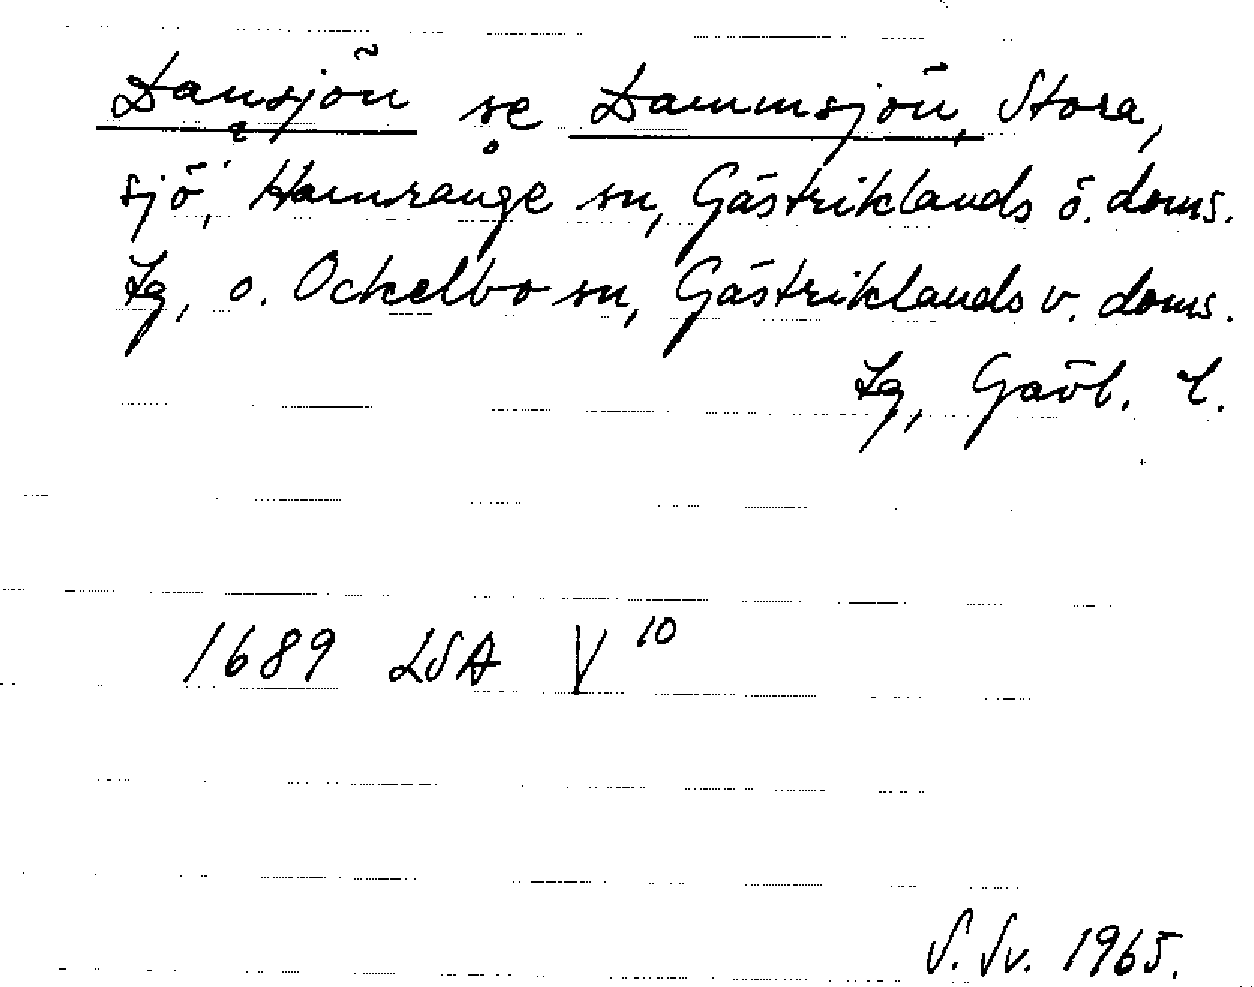 Dansjön se Dammsjön, Stora,
sjö, Hamrånge sn, Gästriklands ö. doms.
Lg, o. Ockelbo sn, Gästriklands v. doms.
Lg, Gävl. l.
1689 LSA V 10
S. Sv. 1965.